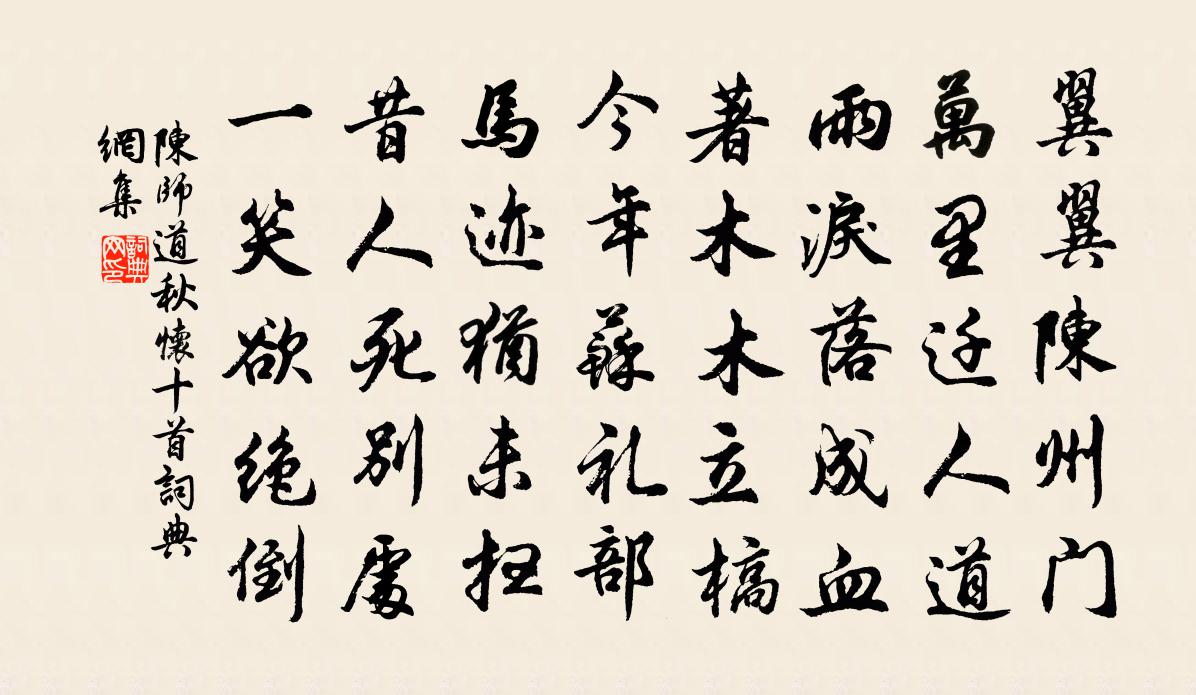 翼翼陳州门
萬里迁人道
雨淚落成血
著木木立槁
今年蘇礼部
馬迹猶未扫
昔人死别處
一笑欲绝倒
陳師道秋懷十首詞典
網集
詞典
网印